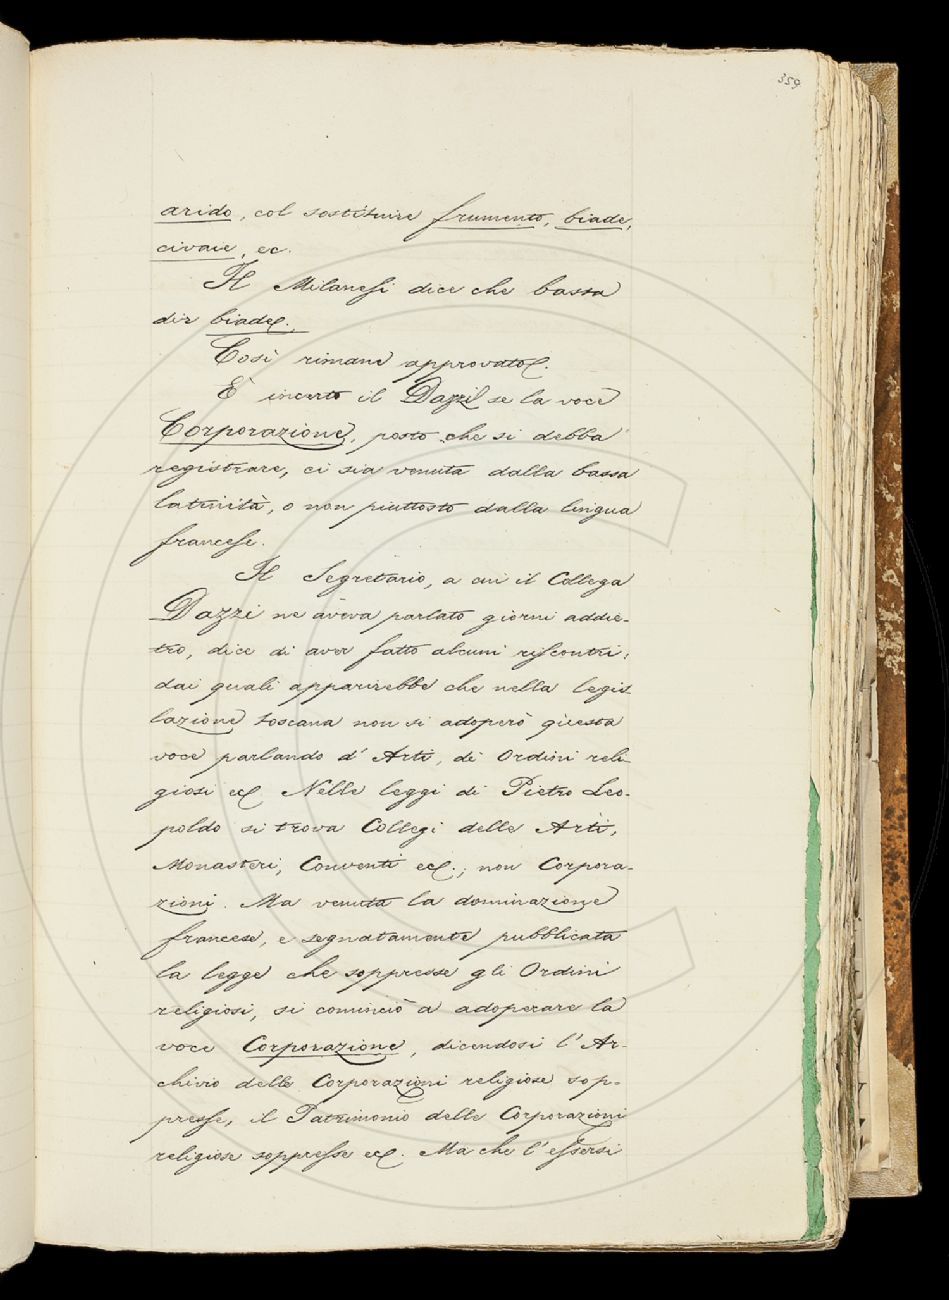 359
arido, col sostituire frumento, biade,
civaie, ec.
Il Milanesi dice che bassa
dir biade.
Così rimane approvato.
È incerto il Dazzi se la voce
Corporazione, posto che si debba
registrare, ci sia venuta dalla bassa
latinità, o non piuttosto dalla lingua
francese.
Il Segretario, a cui il Collega
Dazzi ne aveva parlato giorni addie-
tro, dice di aver fatto alcuni riscontri;
dai quali apparirebbe che nella legis
lazione toscana non si adoperò questa
voce parlando d'Arti, di Ordini reli-
giosi ec. Nelle leggi di Pietro Leo-
poldo si trova Collegi delle Arti,
Monasteri, Conventi ec.; non Corpora-
zioni. Ma venuta la dominazione
francese, e segnatamente pubblicata
la legge che soppresse gli Ordini
religiosi, si cominciò a adoperare la
voce Corporazione, dicendosi l'Ar-
chivio delle Corporazioni religiose sop-
presse, il Patrimonio delle Corporazioni
religiose soppresse ec. Ma che l'essersi